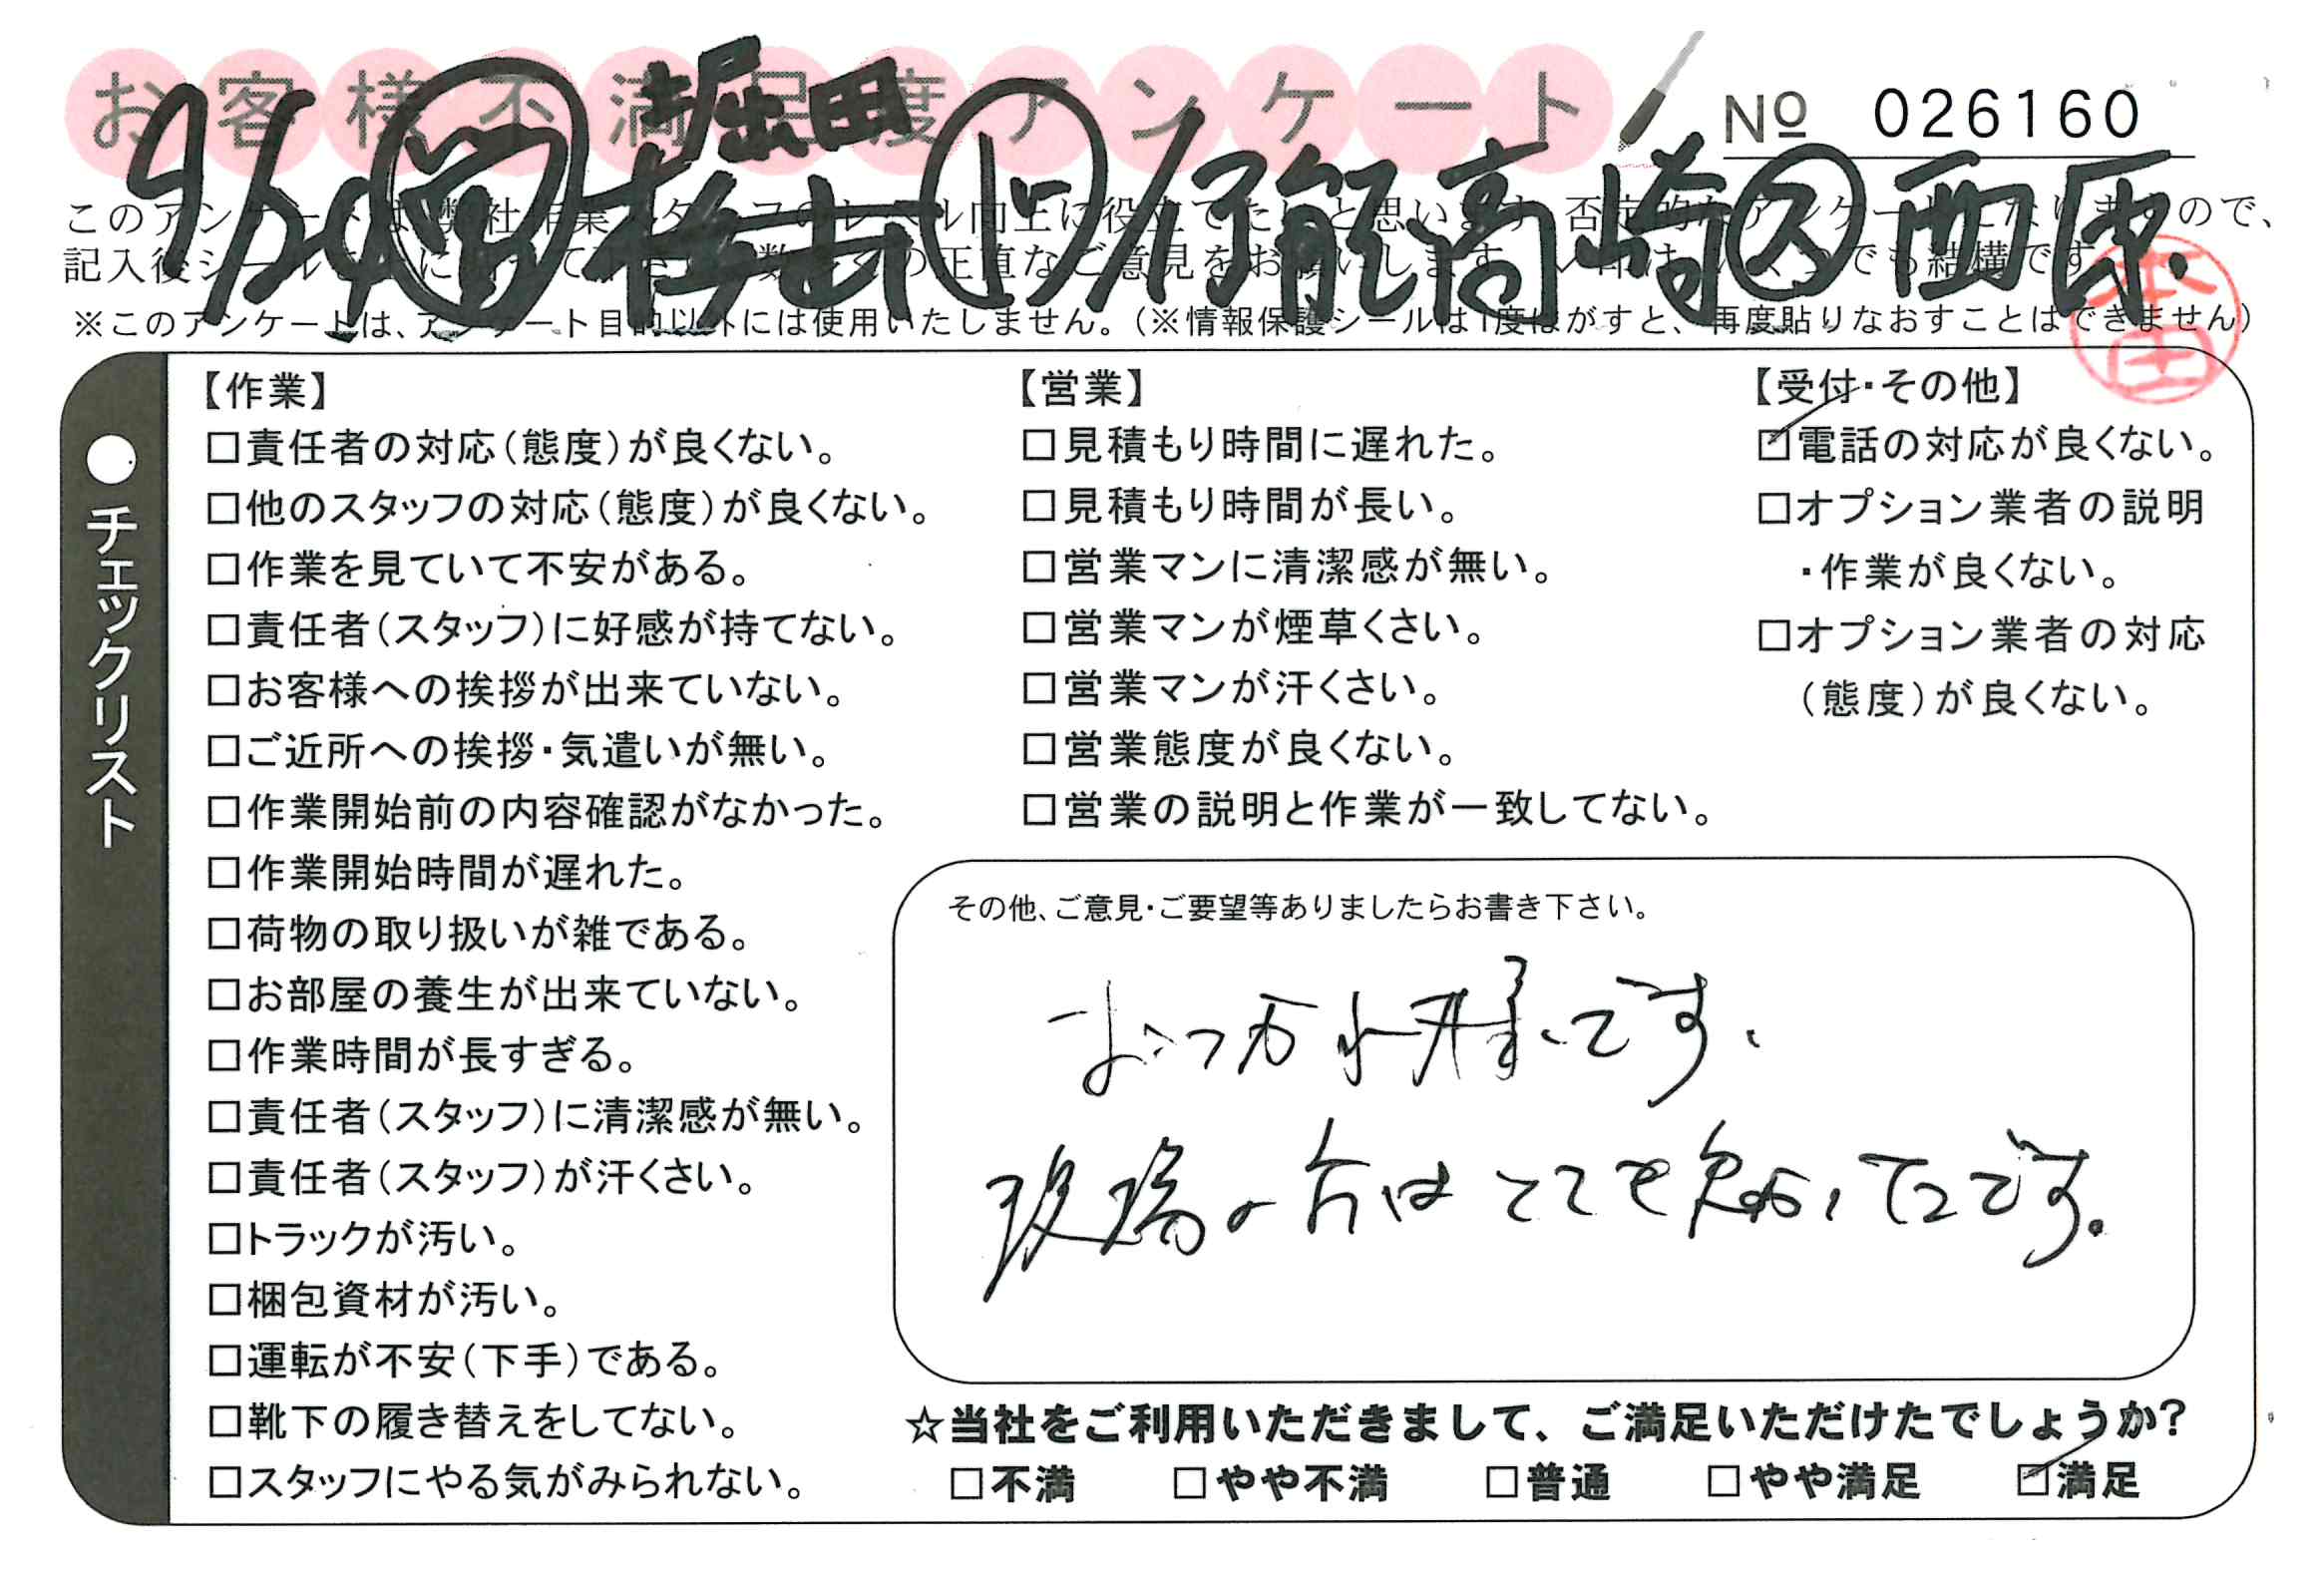 お客様不満足度アンケート
№ 026160
堀田
9/29 営 ド 高崎 ス 西原
※このアンケートは、アンケート目的以外には使用いたしません。(※情報保護シールは1度はがすと、再度貼りなおすことはできません)
本田
●チェックリスト
【作業】
□責任者の対応(態度)が良くない。
□他のスタッフの対応(態度)が良くない。
□作業を見ていて不安がある。
□責任者(スタッフ)に好感が持てない。
□お客様への挨拶が出来ていない。
□ご近所への挨拶・気遣いが無い。
□作業開始前の内容確認がなかった。
□作業開始時間が遅れた。
□荷物の取り扱いが雑である。
□お部屋の養生が出来ていない。
□作業時間が長すぎる。
□責任者(スタッフ)に清潔感が無い。
□責任者(スタッフ)が汗くさい。
□トラックが汚い。
□梱包資材が汚い。
□運転が不安(下手)である。
□靴下の履き替えをしてない。
□スタッフにやる気がみられない。
【営業】
□見積もり時間に遅れた。
□見積もり時間が長い。
□営業マンに清潔感が無い。
□営業マンが煙草くさい。
□営業マンが汗くさい。
□営業態度が良くない。
□営業の説明と作業が一致してない。
【受付・その他】
☑電話の対応が良くない。
□オプション業者の説明
・作業が良くない。
□オプション業者の対応
(態度)が良くない。
その他、ご意見・ご要望等ありましたらお書き下さい。
おつかれ様です、
現場の方はとても良かったです。
☆当社をご利用いただきまして、ご満足いただけたでしょうか?
□不満 □やや不満 □普通 □やや満足 ☑満足